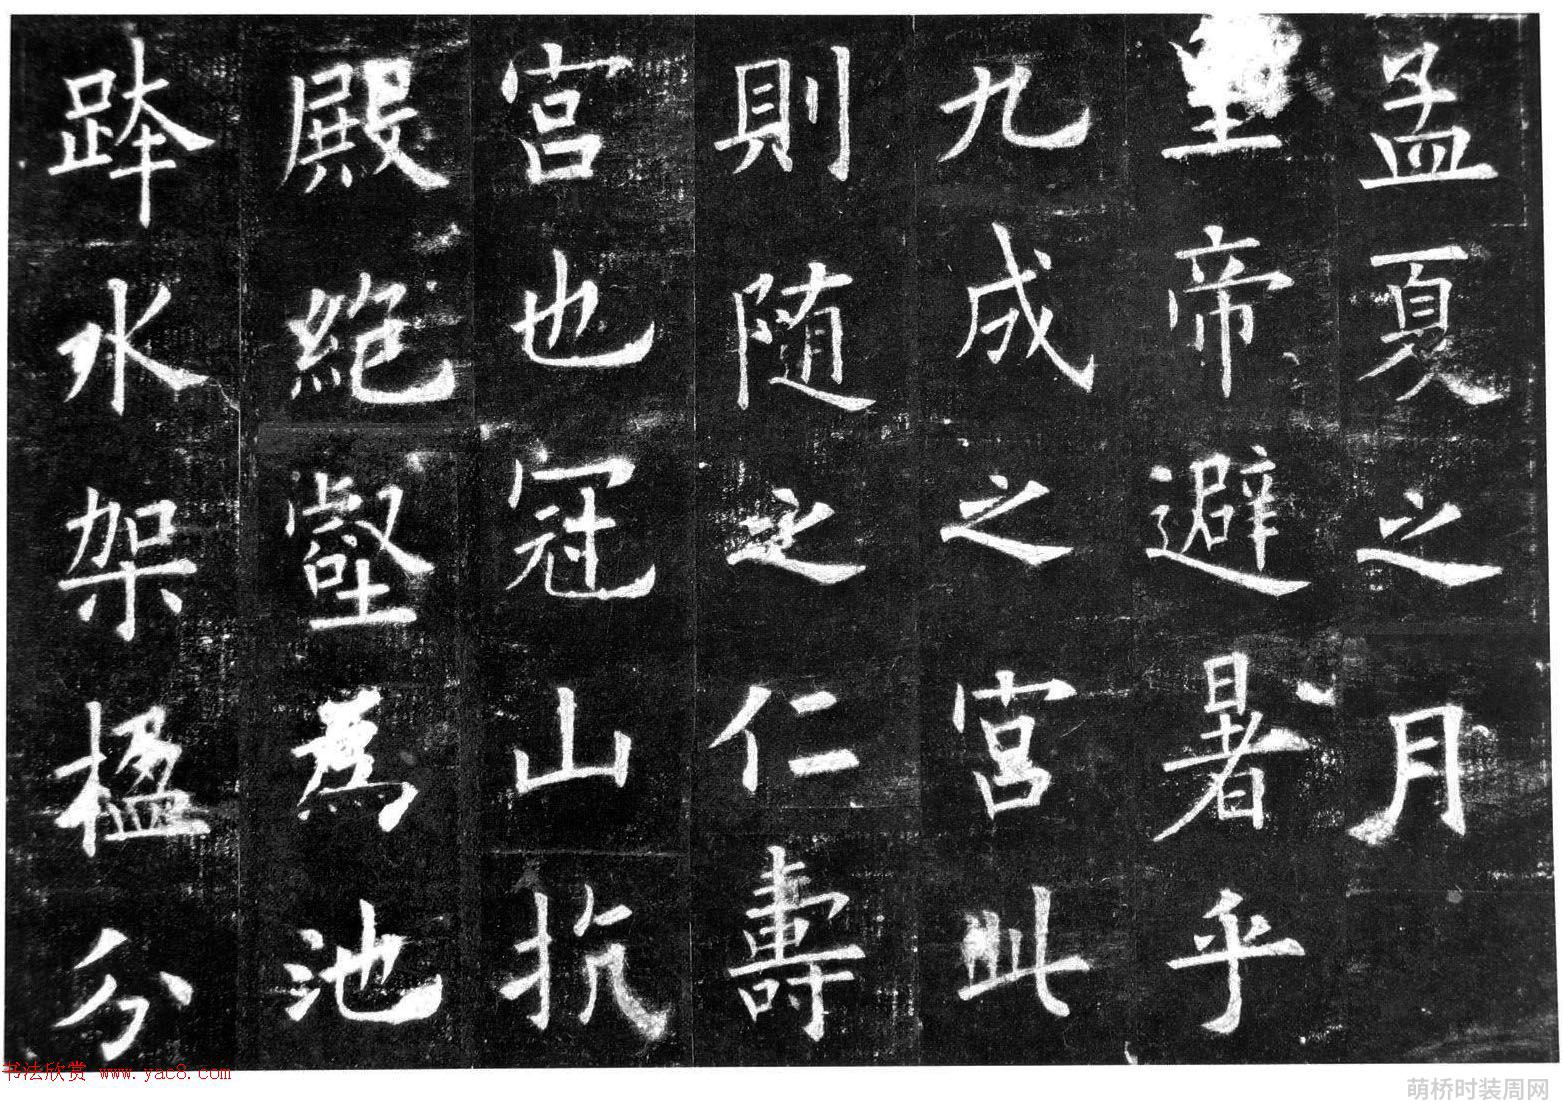 孟夏之月
皇帝避暑乎
九成之宮此
則随之仁壽
宮也冠山抗
殿絕壑為池
跨水架楹分
书法欣赏 www.yac8.com
萌桥时装周网